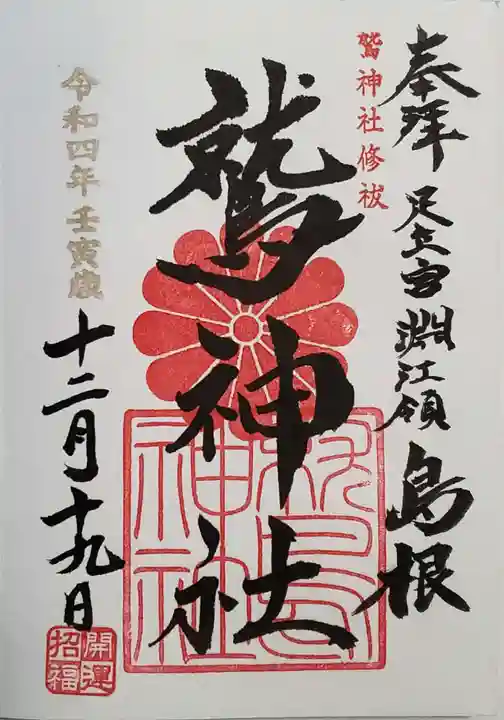 奉拝
足立宮淵江領
島根
鷲神社修祓
鷲神社
令和四年壬寅歳
十二月十九日
開運
招福